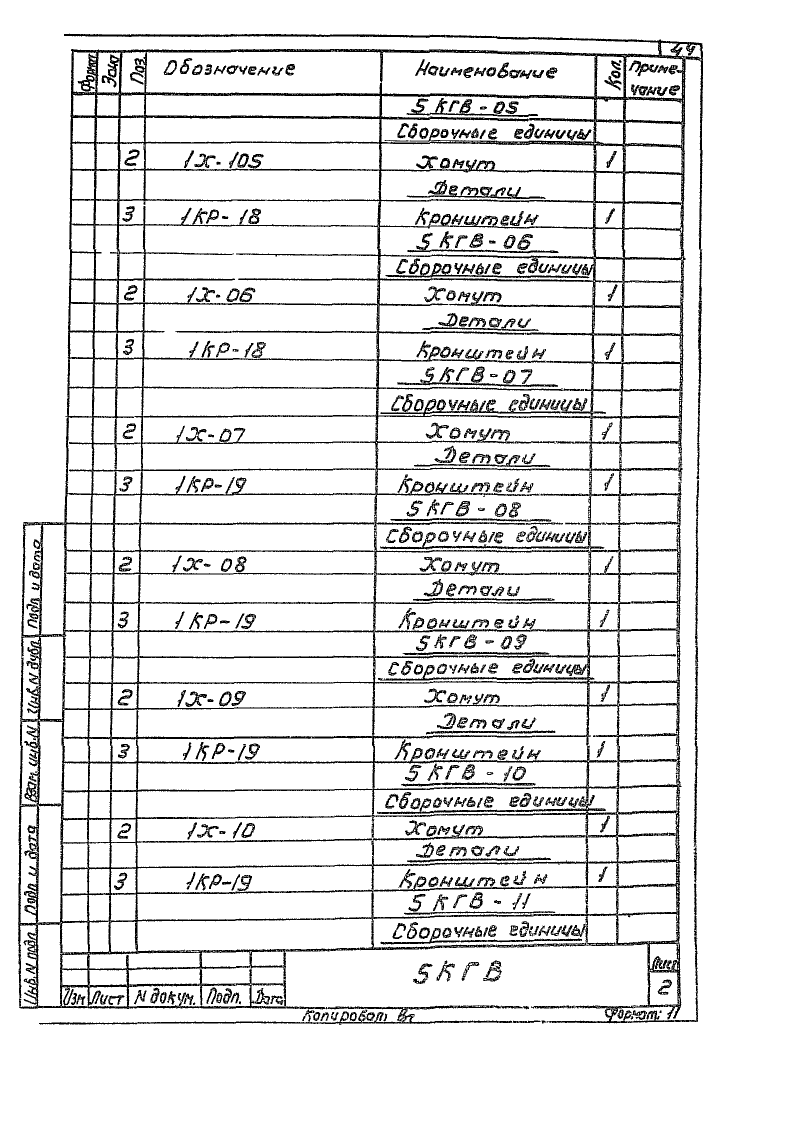 49
Формат Зона Поз. Обозначение Наименование Кол. Приме-
чание
5КГВ-05
Сборочные единицы
2 1Х-105 Хомут 1
Детали
3 1КР-18 Кронштейн 1
5КГВ-06
Сборочные единицы
2 1Х-06 Хомут 1
Детали
3 1КР-18 Кронштейн 1
5КГВ-07
Сборочные единицы
2 1Х-07 Хомут 1
Детали
3 1КР-19 Кронштейн 1
5КГВ-08
Сборочные единицы
2 1Х-08 Хомут 1
Детали
3 1КР-19 Кронштейн 1
5КГВ-09
Сборочные единицы
2 1Х-09 Хомут 1
Детали
3 1КР-19 Кронштейн 1
5КГВ-10
Сборочные единицы
2 1Х-10 Хомут 1
Детали
3 1КР-19 Кронштейн 1
5КГВ-11
Сборочные единицы
Подп. и дата
Инв.N дубл.
Взам. инв.N
Подп. и дата
Инв.N подл.
5КГВ
Лист
2
Изм Лист N докум. Подп. Дата
Копировал Формат: 11